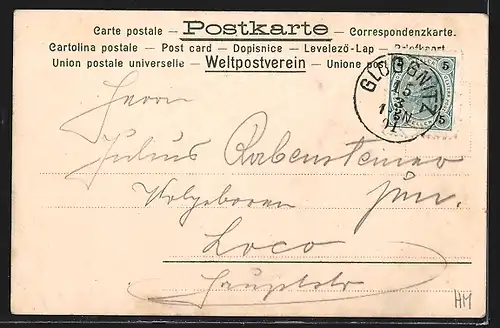 Carte postale — Postkarte — Correspondenzkarte.
Cartolina postale — Post card — Dopisnice — Levelező-Lap — Briefkaart
Union postale universelle — Weltpostverein — Unione pos
5 5
5
GLOGGNITZ
15
3
Herrn
Julius Rabensteiner
Wolgeboren jun.
Loco
Hauptstr
HM